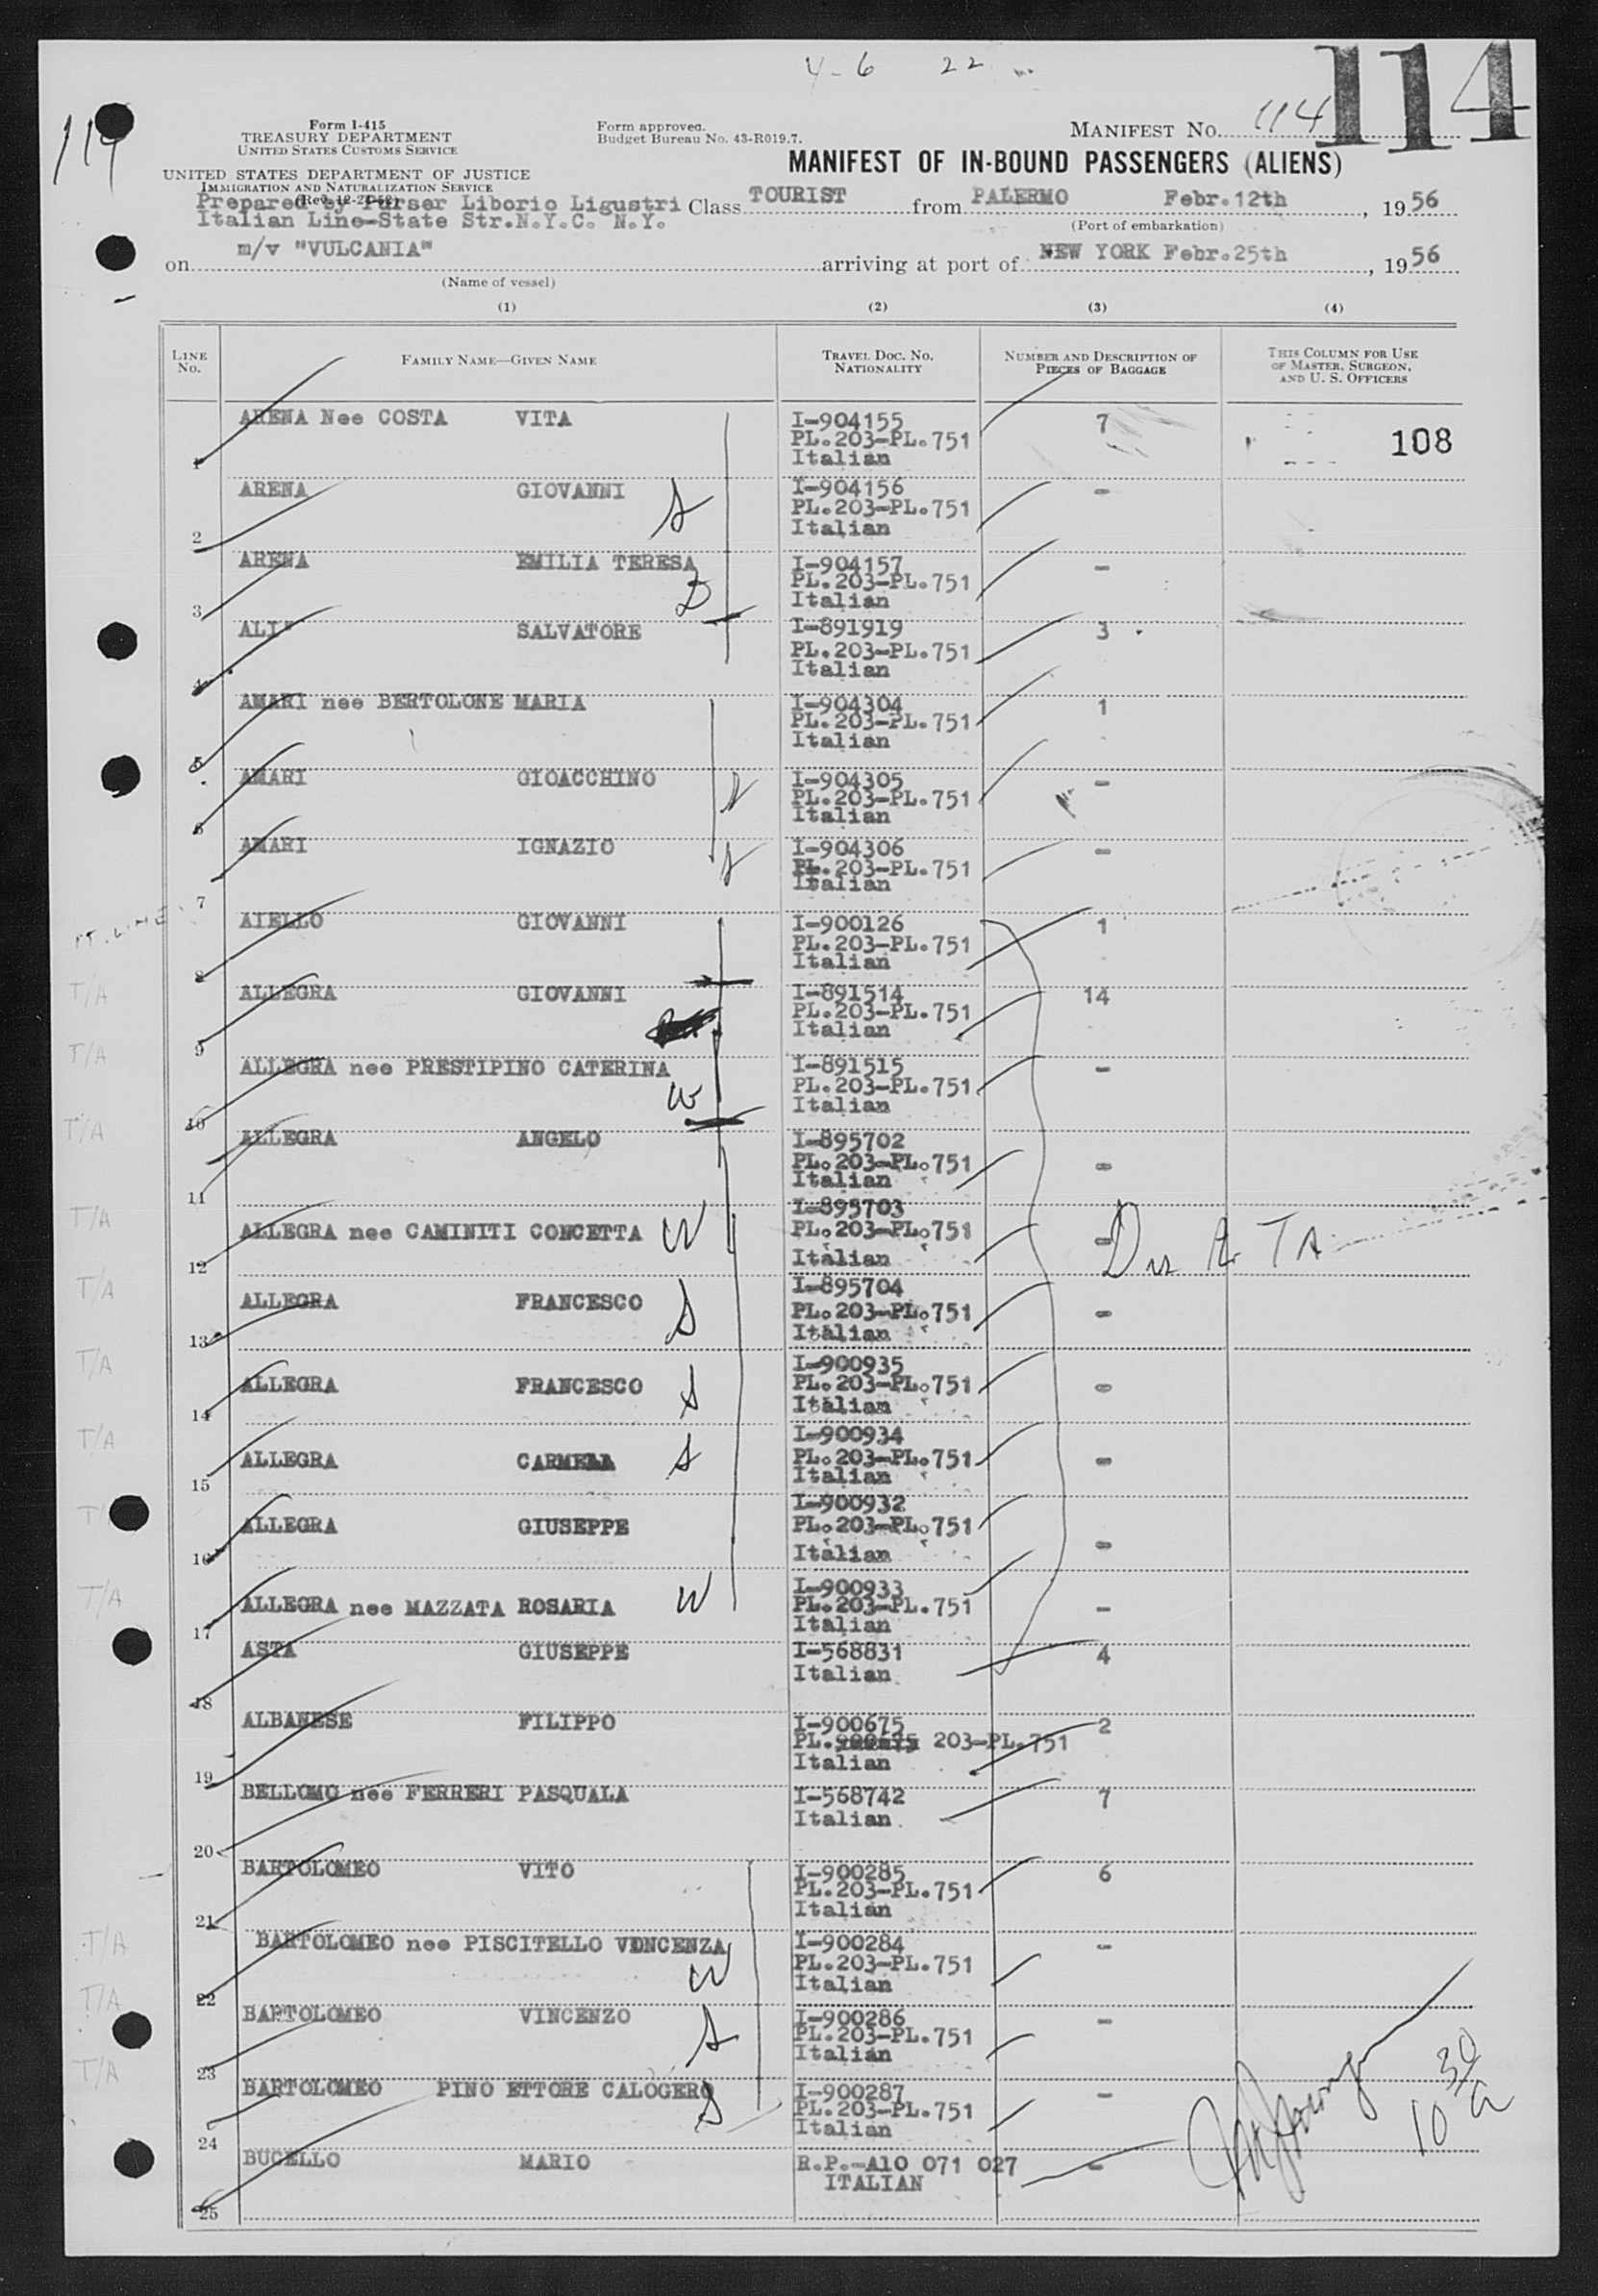 4-6 22
114
114
Form I-415
TREASURY DEPARTMENT
UNITED STATES CUSTOMS SERVICE
Form approved.
Budget Bureau No. 43-R019.7.
MANIFEST No. 114
MANIFEST OF IN-BOUND PASSENGERS (ALIENS)
UNITED STATES DEPARTMENT OF JUSTICE
IMMIGRATION AND NATURALIZATION SERVICE
(Rev. 12-2-52)
Prepared by Purser Liborio Ligustri Class TOURIST from PALERMO Febr.12th, 1956
Italian Line-State Str.N.Y.C. N.Y.
(Port of embarkation)
on m/v "VULCANIA" arriving at port of NEW YORK Febr.25th, 1956
(Name of vessel)
(1) (2) (3) (4)
LINE No.
FAMILY NAME—GIVEN NAME
TRAVEL DOC. NO. NATIONALITY
NUMBER AND DESCRIPTION OF PIECES OF BAGGAGE
THIS COLUMN FOR USE OF MASTER, SURGEON, AND U. S. OFFICERS
1 ARENA Nee COSTA VITA I-904155 7
PL.203-PL.751 108
Italian
2 ARENA GIOVANNI S I-904156 -
PL.203-PL.751
Italian
3 ARENA EMILIA TERESA D I-904157 -
PL.203-PL.751
Italian
4 ALI' SALVATORE I-891919 3
PL.203-PL.751
Italian
5 AMARI nee BERTOLONE MARIA I-904304 1
PL.203-PL.751
Italian
6 AMARI GIOACCHINO S I-904305 -
PL.203-PL.751
Italian
7 AMARI IGNAZIO S I-904306 -
PL.203-PL.751
Italian
8 AIELLO GIOVANNI I-900126 1
PL.203-PL.751
Italian
T/A
9 ALLEGRA GIOVANNI I-891514 14
PL.203-PL.751
Italian
T/A
10 ALLEGRA nee PRESTIPINO CATERINA W I-891515 -
PL.203-PL.751
Italian
T/A
11 ALLEGRA ANGELO I-895702 -
PL.203-PL.751
Italian
T/A
12 ALLEGRA nee CAMINITI CONCETTA W I-895703 -
PL.203-PL.751
Italian
TA
T/A
13 ALLEGRA FRANCESCO S I-895704 -
PL.203-PL.751
Italian
T/A
14 ALLEGRA FRANCESCO S I-900935 -
PL.203-PL.751
Italian
T/A
15 ALLEGRA CARMELA S I-900934 -
PL.203-PL.751
Italian
16 ALLEGRA GIUSEPPE I-900932 -
PL.203-PL.751
Italian
T/A
17 ALLEGRA nee MAZZATA ROSARIA W I-900933 -
PL.203-PL.751
Italian
18 ASTA GIUSEPPE I-568831 4
Italian
19 ALBANESE FILIPPO I-900675 2
PL.900675 203-PL.751
Italian
20 BELLOMO nee FERRERI PASQUALA I-568742 7
Italian
21 BARTOLOMEO VITO I-900285 6
PL.203-PL.751
Italian
T/A
22 BARTOLOMEO nee PISCITELLO VINCENZA W I-900284 -
PL.203-PL.751
Italian
T/A
23 BARTOLOMEO VINCENZO S I-900286 -
PL.203-PL.751
Italian
T/A
24 BARTOLOMEO PINO ETTORE CALOGERO S I-900287 -
PL.203-PL.751
Italian
25 BUCELLO MARIO R.P.-A10 071 027 -
ITALIAN
10 30 a